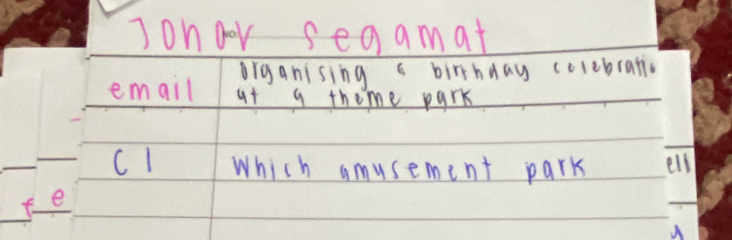 Johor segamat
email
organising a birthday celebratio
at a theme park
C1 Which amusement park
ell
e